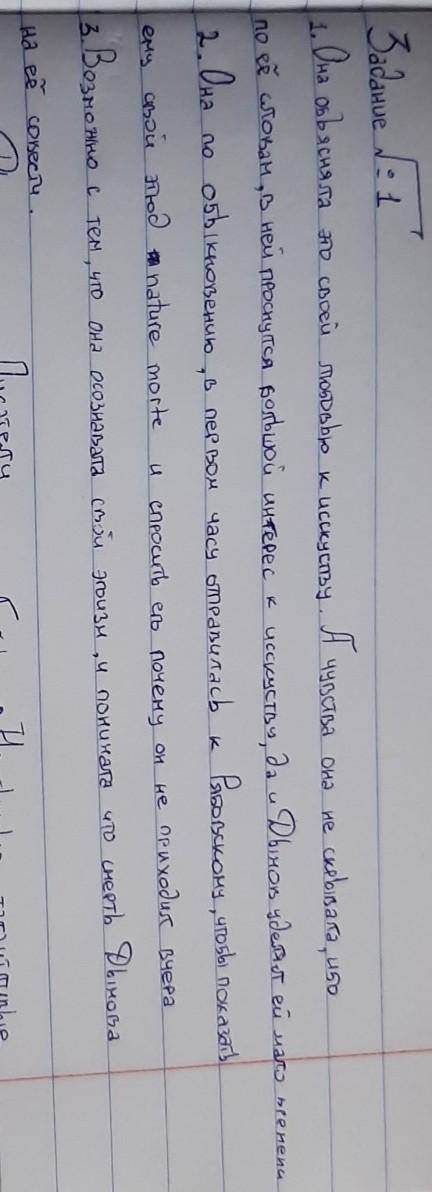 Задание №1
1. Она объясняла это своей любовью к исскуству. А чувства она не скрывала, ибо
по её словам, в ней проснулся большой интерес к исскуству, да и Дымов уделял ей мало времени
2. Она по обыкновению, в первом часу отправилась к Рябовскому, чтобы показать
ему свой этюд nature morte и спросить его почему он не приходил вчера
3. Возможно с тем, что она осознавала свой эгоизм, и понимала что смерть Дымова
на её совести.